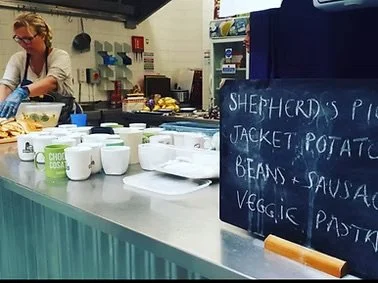 SHEPHERD'S PI
JACKET POTATO
BEANS + SAUSAG
VEGGIE PASTA
CHOC